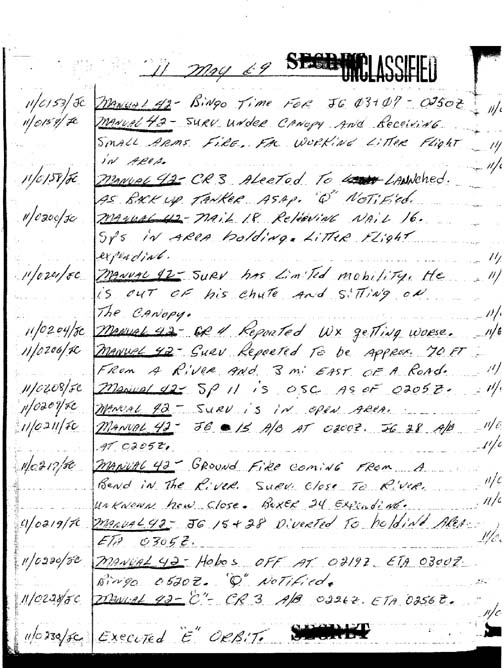 11 May 69 SECRET UNCLASSIFIED
11/0153/JC Manual 42 - Bingo Time For JG 03+07 - 0250Z
11/0157/JC Manual 42 - Surv. under Canopy And Receiving
Small Arms Fire. FM working Litter Flight
in Area.
11/0158/JC Manual 42 - CR 3 Alerted To Launched.
AS Back up Tanker ASAP. "Q" Notified.
11/0200/JC Manual 42 - Nail 18 Relieving Nail 16.
SPs in Area holding. Litter Flight
expending.
11/0201/JC Manual 42 - Surv has Limited mobility. He
is out of his chute And Sitting on
The Canopy.
11/0204/JC Manual 42 - Reported Wx getting worse.
11/0206/JC Manual 42 - Surv Reported To be Approx. 70 FT
From A River And 3 mi East of A Road.
11/0208/JC Manual 42 - SP 11 is OSC As of 0205Z.
11/0209/JC Manual 42 - Surv is in open Area.
11/0211/JC Manual 42 - JG 15 A/B AT 0200Z. JG 28 A/B
AT 0205Z.
11/0217/JC Manual 42 - Ground Fire coming From A
Bend in the River. Surv Close To River.
unknown how close. Boxer 24 Expending.
11/0219/JC Manual 42 - JG 15+28 Diverted To holding Area.
ETA 0305Z.
11/0220/JC Manual 42 - Hobos off AT 0219Z ETA 0300Z
Bingo 0520Z. "Q" Notified.
11/0228/JC Manual 42 - "C" - CR 3 A/B 0226Z. ETA 0256Z.
11/0230/JC Executed "E" Orbit. SECRET